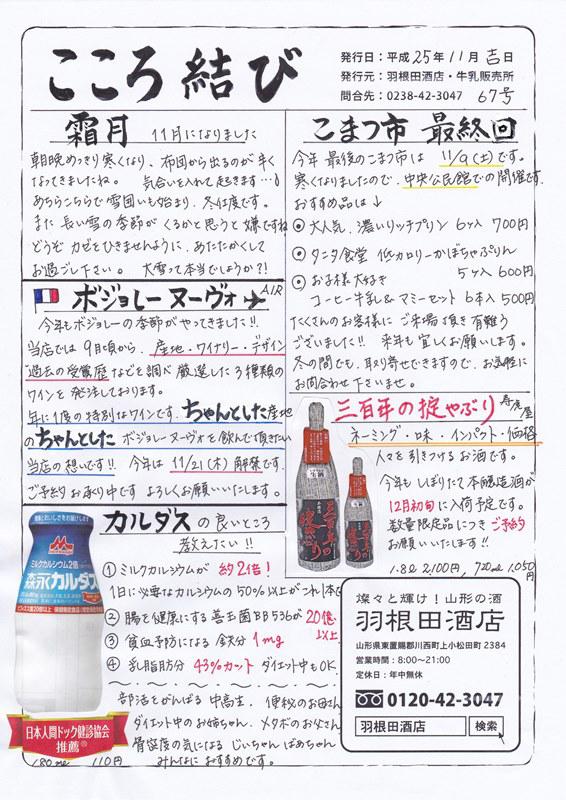 こころ結び
発行日：平成25年11月吉日
発行元：羽根田酒店・牛乳販売所
問合先：0238-42-3047 67号
霜月 11月になりました
朝晩めっきり寒くなり、布団から出るのが辛く
なってきましたね。 気合いを入れて起きます…♂
あちらこちらで雪囲いも始まり、冬仕度です。
また長い雪の季節がくるかと思うと嫌ですね
どうぞカゼをひきませんように、あたたかくして
お過ごし下さい。 大雪って本当でしょうか?!
ボジョレーヌーヴォ AIR
今年もボジョレーの季節がやってきました!!
当店では9月頃から、産地・ワイナリー・デザイン
過去の受賞歴などを調べ厳選した3種類の
ワインを発注しております。
年に1度の特別なワインです。ちゃんとした産地
のちゃんとしたボジョレーヌーヴォを飲んで頂きたい
当店の想いです!! 今年は11/21(木)解禁です。
ご予約お承り中です よろしくお願いいたします。
カルダスの良いところ
教えたい!!
① ミルクカルシウムが 約2倍!
1日に必要なカルシウムの50%以上がこれ1本
② 腸を健康にする善玉菌BB536が20億以上
③ 貧血予防になる 鉄分 1mg
④ 乳脂肪分 43%カット ダイエット中もOK
部活をがんばる中高生、便秘のお母さん
ダイエット中のお姉ちゃん、メタボのお父さん
骨密度の気になるじいちゃんばあちゃん
みんなにおすすめです。
ミルクカルシウム2倍
森永カルダス
日本人間ドック健診協会
推薦®
180ml 110円
こまつ市 最終回
今年最後のこまつ市は 11/9(土)です。
寒くなりましたので、中央公民館での開催です。
おすすめ品は↓
⦿ 大人気、濃いリッチプリン 6ヶ入 700円
⦿ タニタ食堂 低カロリーかぼちゃぷりん
5ヶ入 600円
⦿ お子様大好き
コーヒー牛乳&マミーセット 6本入 500円
たくさんのお客様にご来場頂き有難う
ございました!! 来年も宜しくお願いします。
冬の間でも、取り寄せできますので、お気軽に
お問合わせ下さいませ。
三百年の掟やぶり 寿虎屋
ネーミング・味・インパクト・価格
人々を引きつけるお酒です。
今年もしぼりたて本醸造酒が
12月初旬に入荷予定です。
数量限定品につきご予約
お願いいたします!!
1.8ℓ 2,100円, 720ml 1,050円
燦々と輝け！山形の酒
羽根田酒店
山形県東置賜郡川西町上小松田町2384
営業時間：8:00〜21:00
定休日：年中無休
0120-42-3047
羽根田酒店 検索